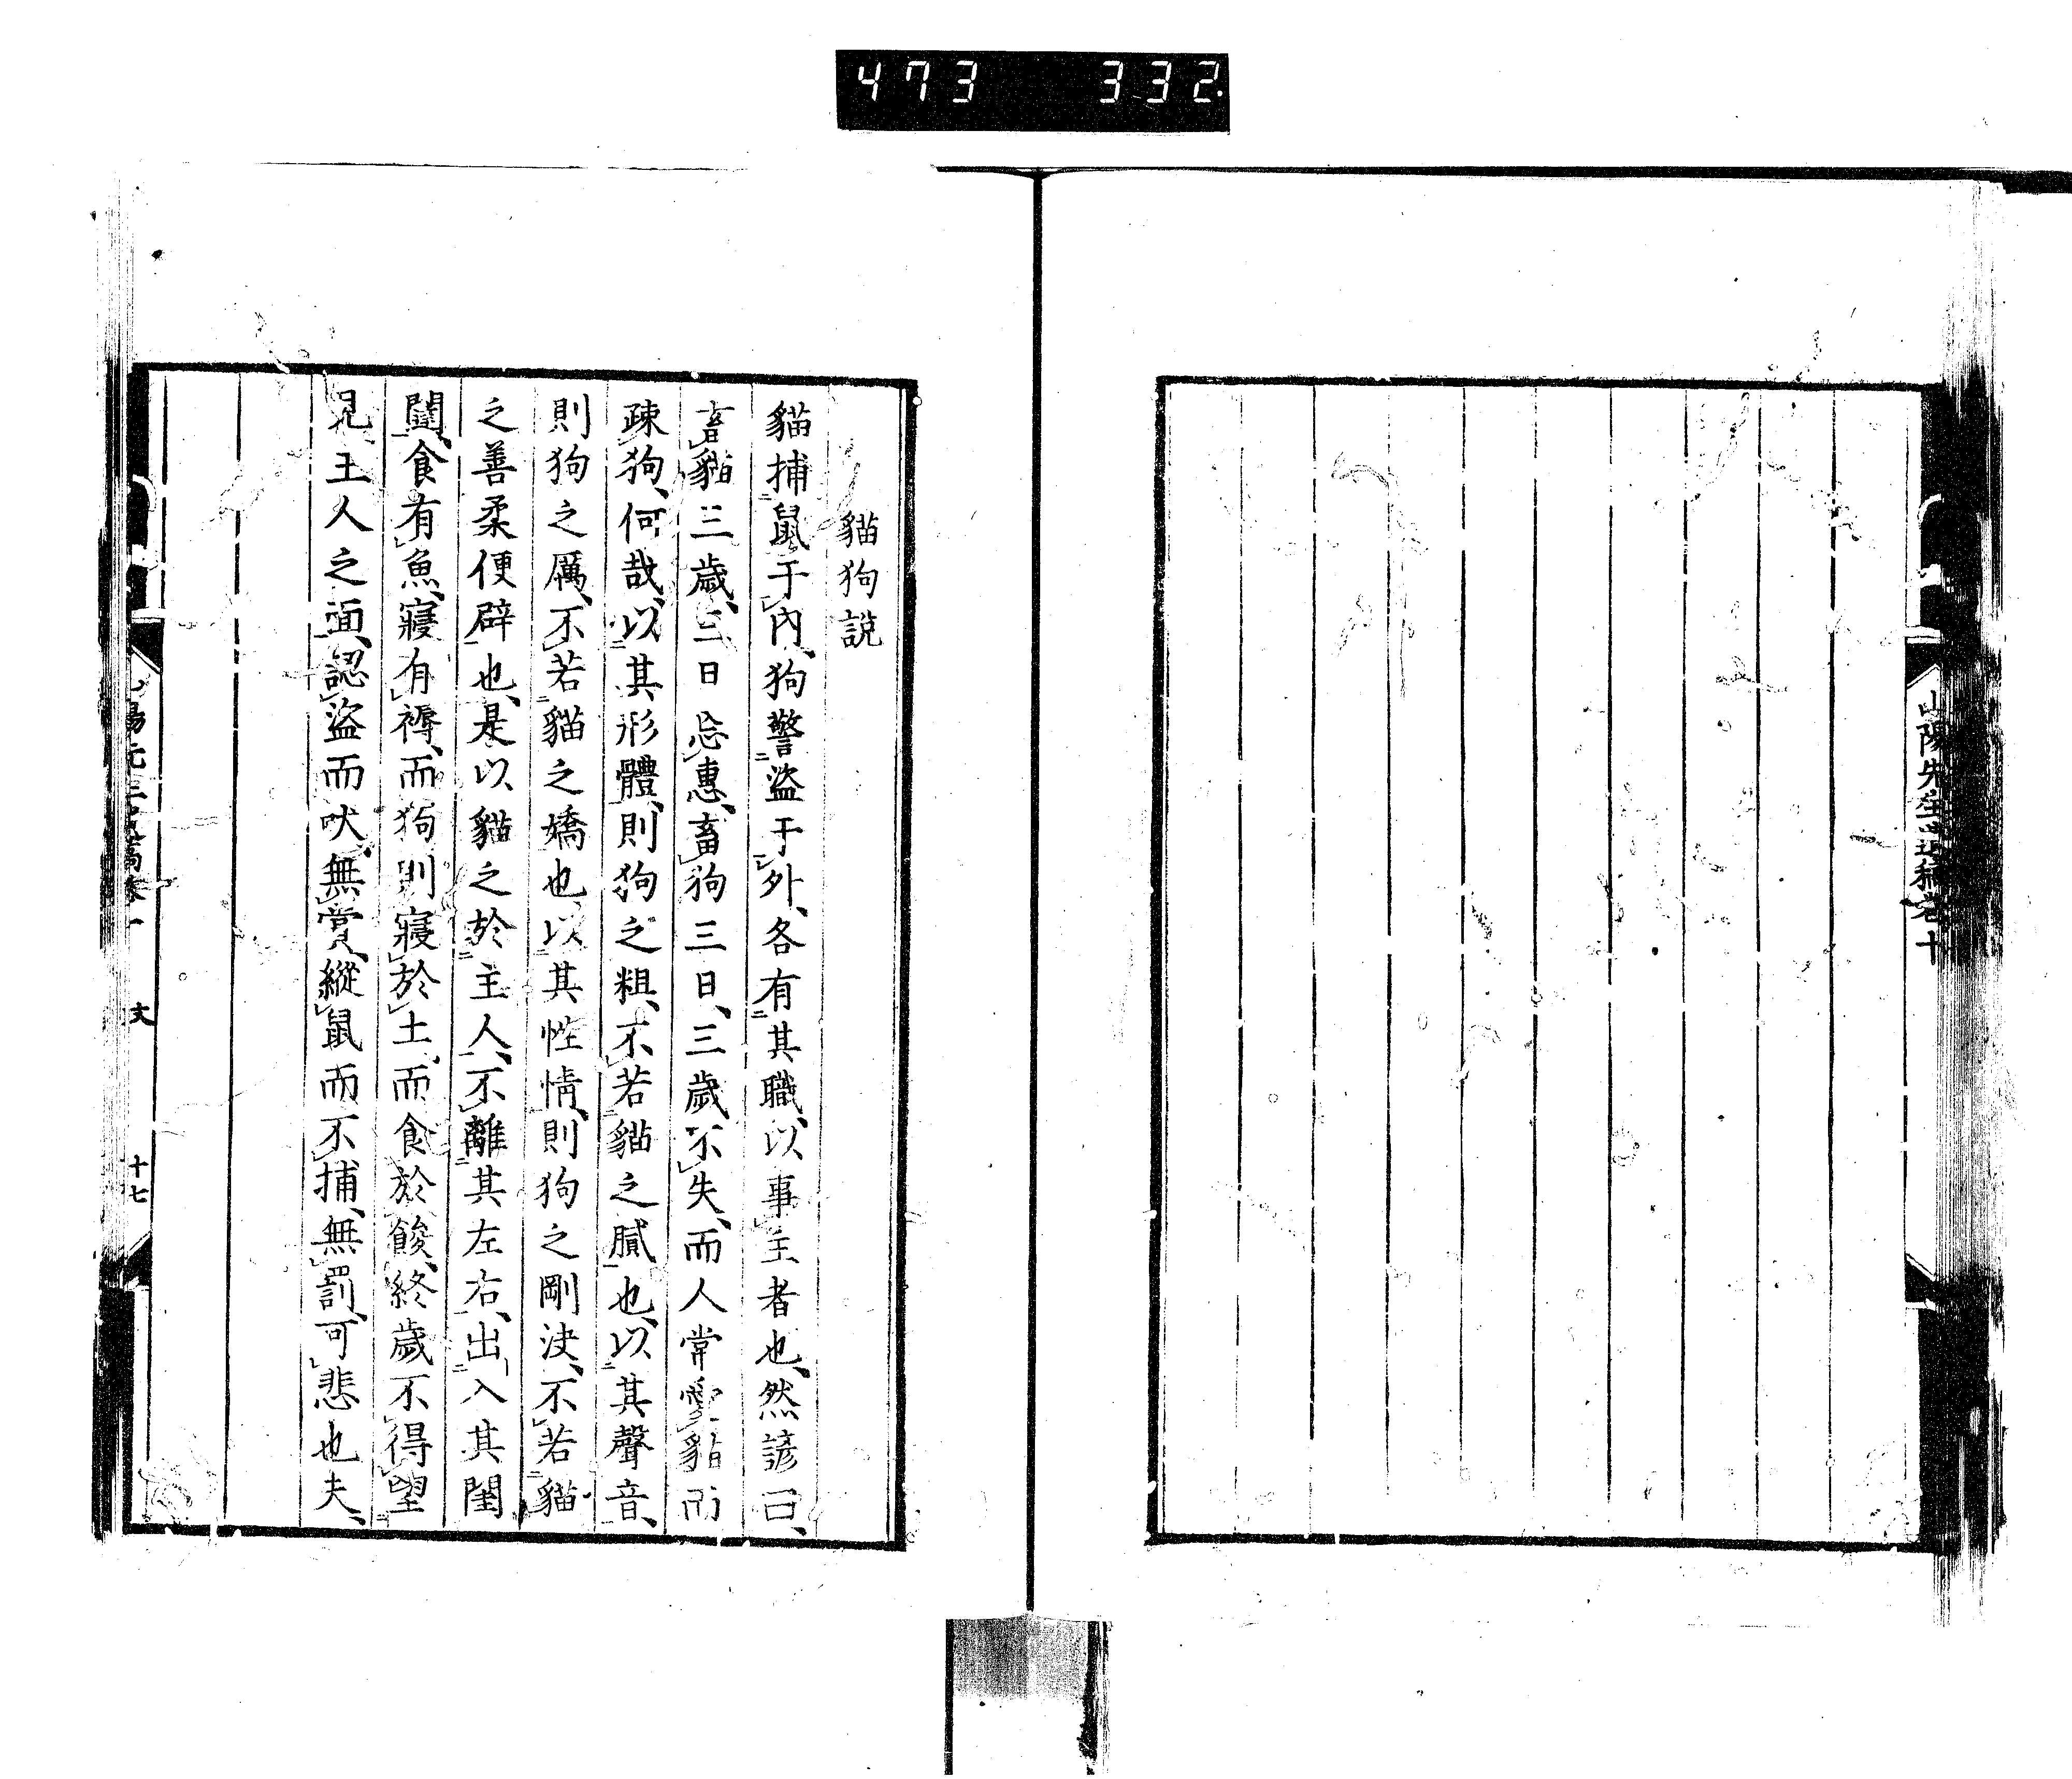 473 332
山陽先生遺稿卷十
貓狗說
貓捕鼠于內、狗警盜于外、各有其職、以事主者也、然諺曰、
畜貓三歲、三日忘惠、畜狗三日、三歲不失、而人常愛貓而
疎狗、何哉、以其形體、則狗之粗、不若貓之膩也、以其聲音、
則狗之厲、不若貓之嬌也、以其性情、則狗之剛決、不若貓
之善柔便辟也、是以貓之於主人、不離其左右、出入其閨
闥、食有魚、寢有褥、而狗則寢於土、而食於餕、終歲不得望
見主人之面、認盜而吠、無賞、縱鼠而不捕、無罰、可悲也夫、
文
十七